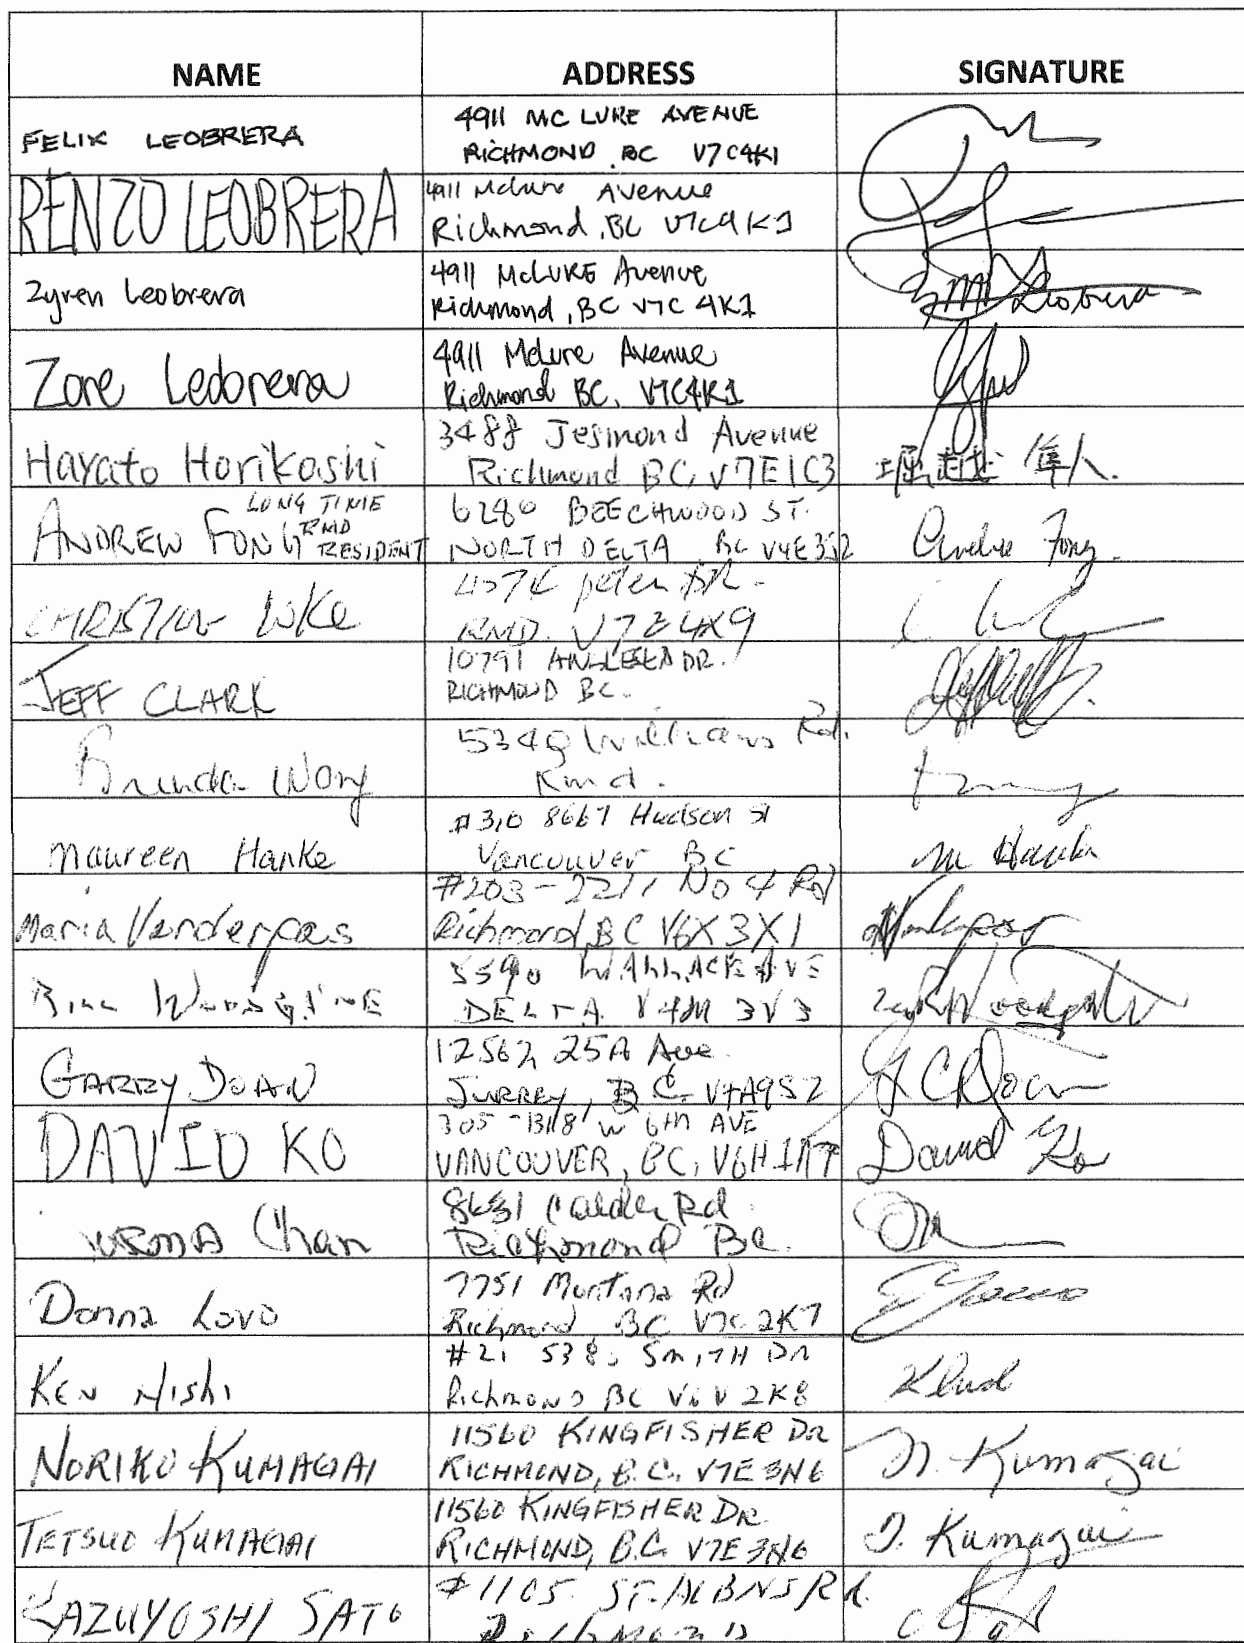 NAME ADDRESS SIGNATURE
FELIX LEOBRERA
4911 MC LURE AVENUE
RICHMOND, BC V7C4K1
RENZO LEOBRERA
4911 McLure Avenue
Richmond, BC V7C4K1
Zyren Leobrera
4911 McLURE Avenue
Richmond, BC V7C 4K1
Leobrera
Zore Leobrera
4911 McLure Avenue
Richmond BC, V7C4K1
Hayato Horikoshi
3488 Jesmond Avenue
Richmond BC, V7E1C3
堀越 隼人
ANDREW FONG LONG TIME RMD RESIDENT
6280 BEECHWOOD ST.
NORTH DELTA BC V4E3S2
Andrew Fong.
LUKE
RMD. V7E4X9
JEFF CLARK
10791 DR.
RICHMOND BC.
Brenda Wong
5340 Williams Rd.
Rmd.
Maureen Hanke
#310 8667 Hudson St
Vancouver BC
M Hanke
Maria Vanderpas
#203-2211 No 4 Rd
Richmond BC V6X 3X1
5590 WALLACE AVE
DELTA V4M 3V3
GARRY DOAN
12562 25A Ave.
SURREY, B.C. V4A9S2
G C Doan
DAVID KO
305-1318 W 6th AVE
VANCOUVER, BC, V6H1A7
David Ko
NORMA Chan
8631 Calder Rd
Richmond BC.
Donna Lovo
7751 Montana Rd
Richmond, BC V7C 2K7
KEN NISHI
#21 5380 SMITH DR
Richmond BC V6V 2K8
NORIKO KUMAGAI
11560 KINGFISHER DR
RICHMOND, B.C. V7E 3N6
N. Kumagai
TETSUO KUMAGAI
11560 KINGFISHER DR.
RICHMOND, B.C. V7E 3N6
T. Kumagai
KAZUYOSHI SATO
#1105 ST. ALBANS Rd.
Richmond